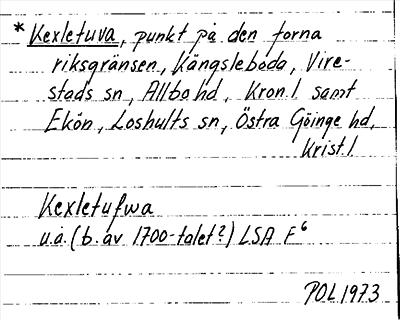 * Kexletuva, punkt på den forna
riksgränsen, Kängsleboda, Vire-
stads sn, Allbo hd, Kron.l. samt
Ekön, Loshults sn, Östra Göinge hd,
Krist.l.
Kexletufwa
u.å. (b. av 1700-talet?) LSA F6
POL 1973